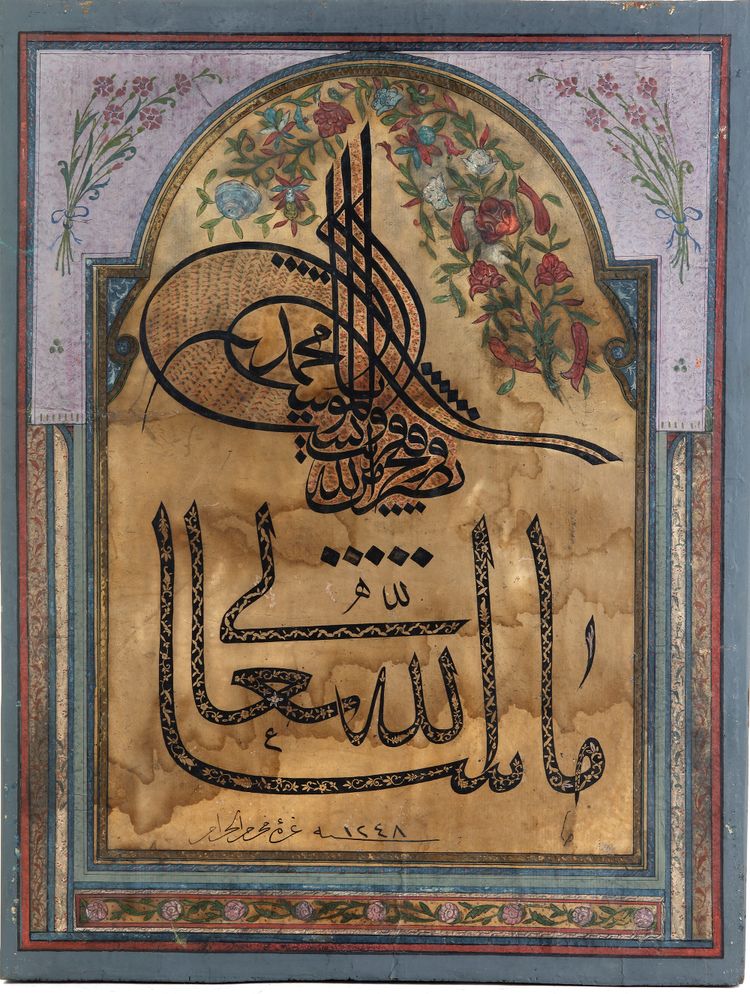 نصر من الله وفتح قريب وبشر المؤمنين يا محمد
ما شاء الله تعالى
سنه ١٢٤٨ غرة محرم الحرام